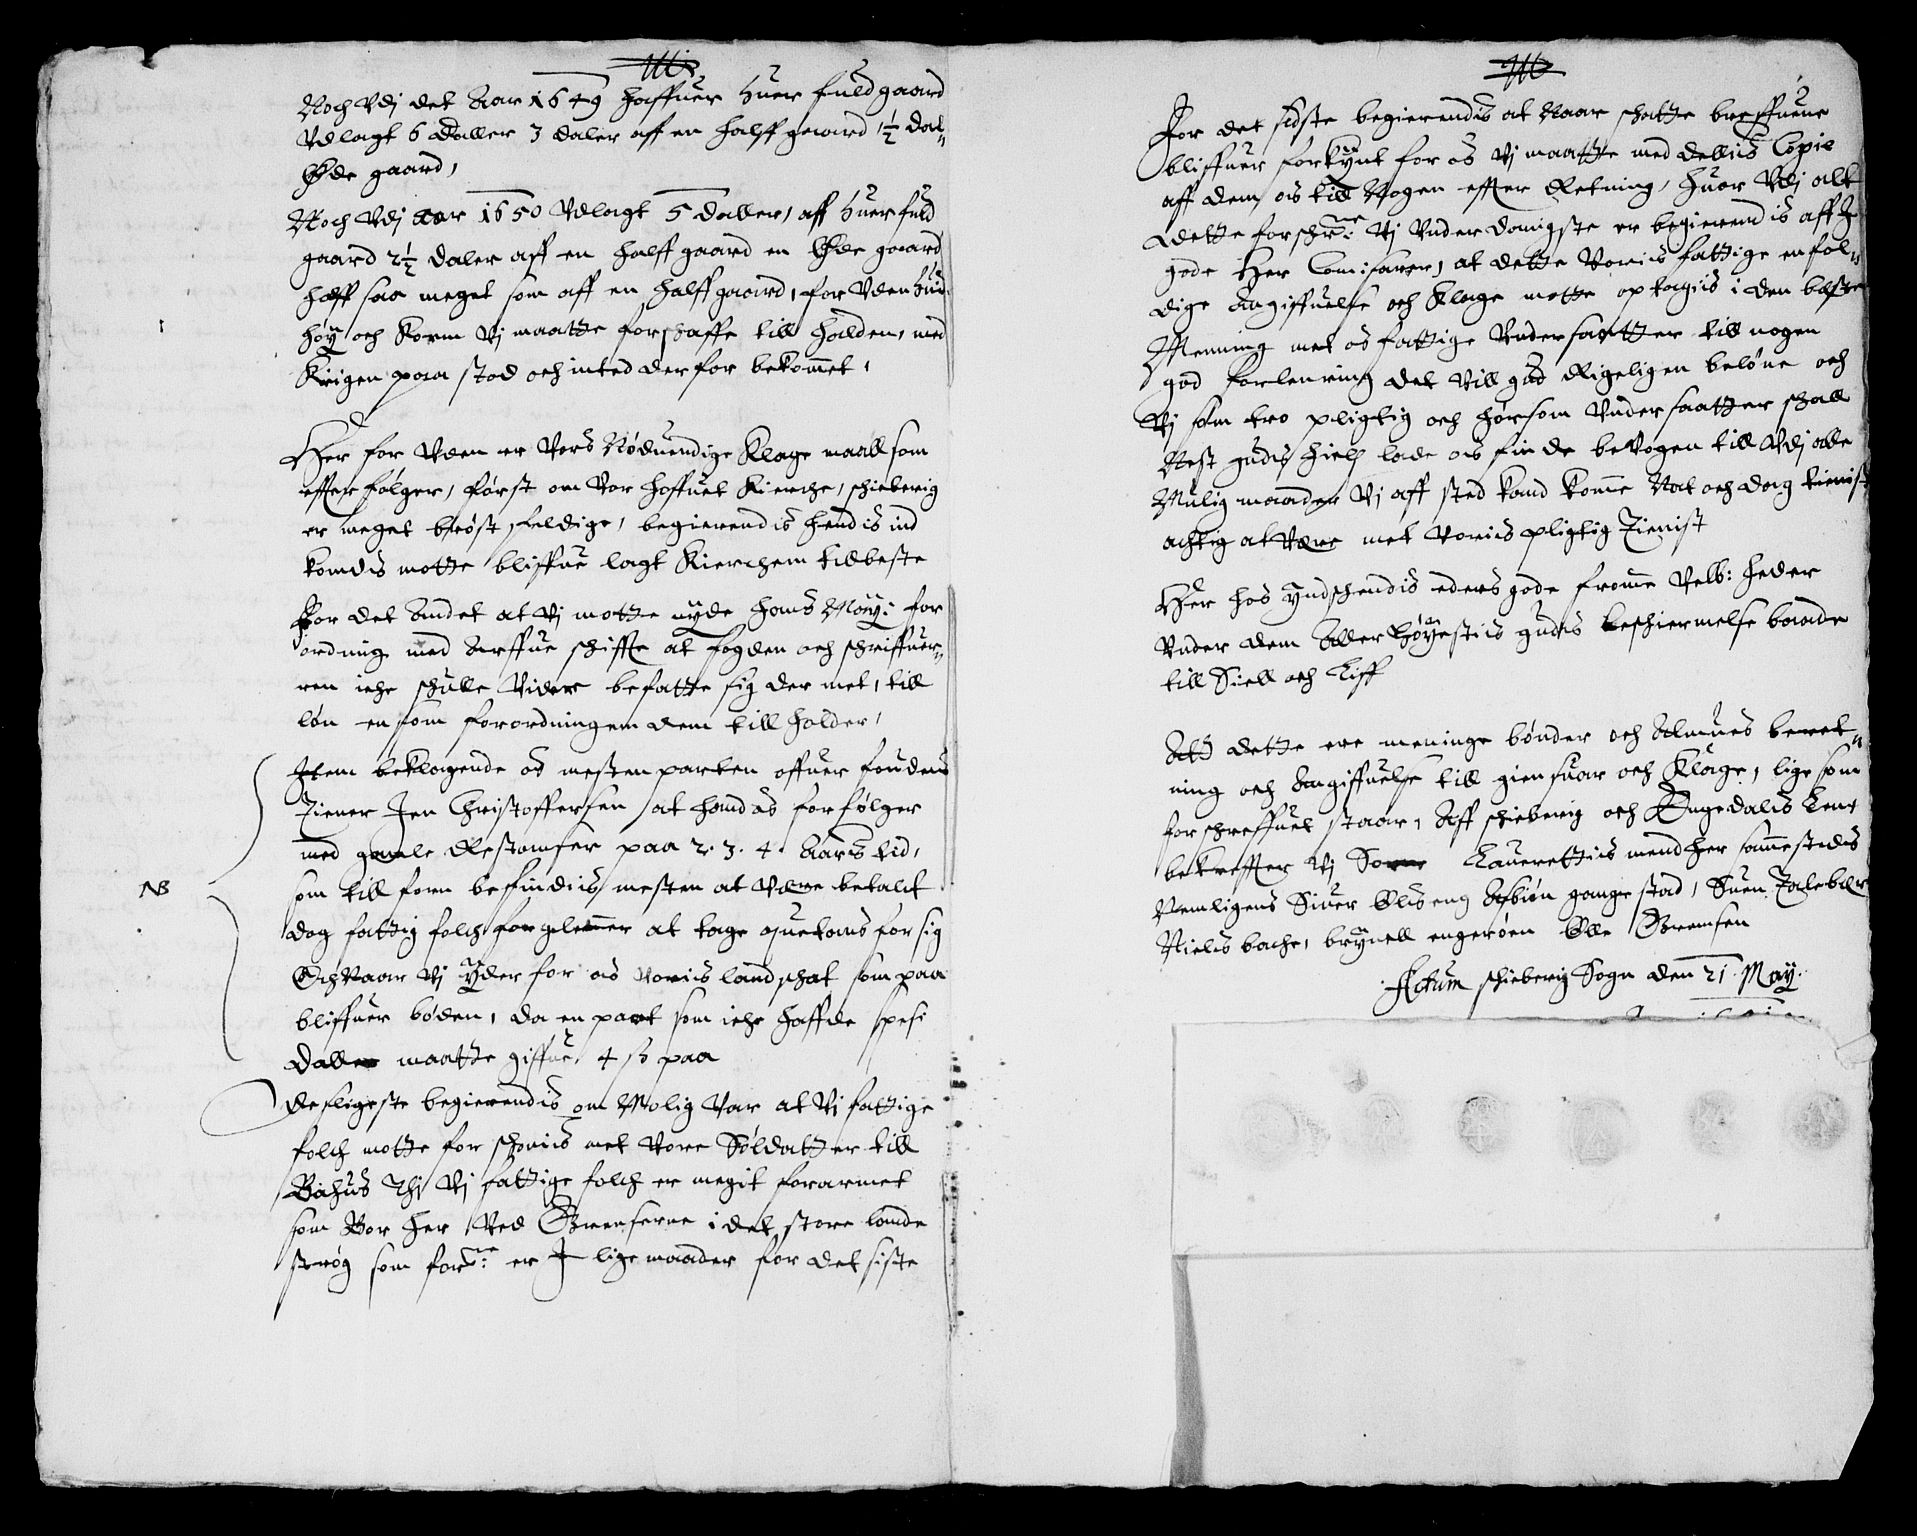 Noch Vdj det Aar 1649 haffuer huer fuld gaard
Vdlagt 6 daller 3 daler aff en halff gaard, 1½ dal„
Øde gaard,
Noch Vdj aar 1650 Vdlagt 5 daller, aff huer fuld
gaard 2½ daler aff en halff gaard en Øde gaard
halff saa meget som aff en halff gaard, for Vden huad
høÿ och Korn Vj maatte forschaffe till Halden, med
Krigen paa stod och inted derfor bekomet,
Her for Vden er Vors Nøduendige Klage maall som
effter følger, først om Vor hoffuet Kierche, schieberig
er meget brøst feldige, begierendis hendis ind
komdis motte bliffue lagt Kierchen till beste
For det Andet at Vj motte nÿde Hans Maÿ: for
ordning med Arffue schiffte at fogden och schriffuer„
ren iche schulle Vider befatte sig der met, till
løn en som forordningen dem till holder,
Item beklagende os mesten parten offuer foudens
Tiener Jen Christoffersen at hand os forfølger
med gamle Restantser paa 2. 3. 4. Aars tid,
som till forn befindis mesten at Være betalt
NB
dog fattig folch forglemer at tage quetans for sig
Och Naar Vj Ÿder for os Voris landschat som paa
bliffuer bøden, da en part som iche haffde spesi
daller maatte giffue 4 ß paa
Desligeste begierendis om Molig Var at Vj fattige
folch motte for schonis met Vore Soldatter till
Bahus Thj Vj fattige folch er megit forarmet
som Bor her Ved Grenserne i det store lande
strøg som for: ne er J lige maader for det siste
For det sidste begierendis at Naar schatte breffuene
bliffuer forkÿnt for os Vj maatte med dellis Copie
aff dem os till Nogen effter Retning, huor Vdj alt
dette forschr: ne Vj Vnder danigste er begierendis aff J
gode Her Comisarer, at dette Voris fattige enfol„
dige angiffuelse och Klage motte optagis i den beste
Menning met os fattige Vndersaatter till nogen
god forlenring det Vill gud Rigeligen beløne och
Vj som tro pligtig och hørsom Vndersaatter schall
Nest guds hielp lade os finde beVogen till Vdj alle
Mulig maader Vj aff sted kand kome Nat och dag tienist
achtig at Være met Voris pligtig Tienist
Her hos ÿndschendis eders gode frome Velb: heder
Vnder dem Aller høÿestis guds beschiermelse baade
till Siell och Liff
Att dette ere meninge bønder och Almues beret„
ning och Angiffuelse till giensuar och Klage, lige som
forschreffuet staar, Aff schieberig och Engedalls Lens
bekreffter Vj Sorne Lauerettis mend her samestedis
Nemligens Siuer Olseng Asbiøn gangestad, Suen Jaleber
Nielis bache, brÿnell engerøen Olle Gremsen
Actum schieberig Sogn den 21 Maÿ.